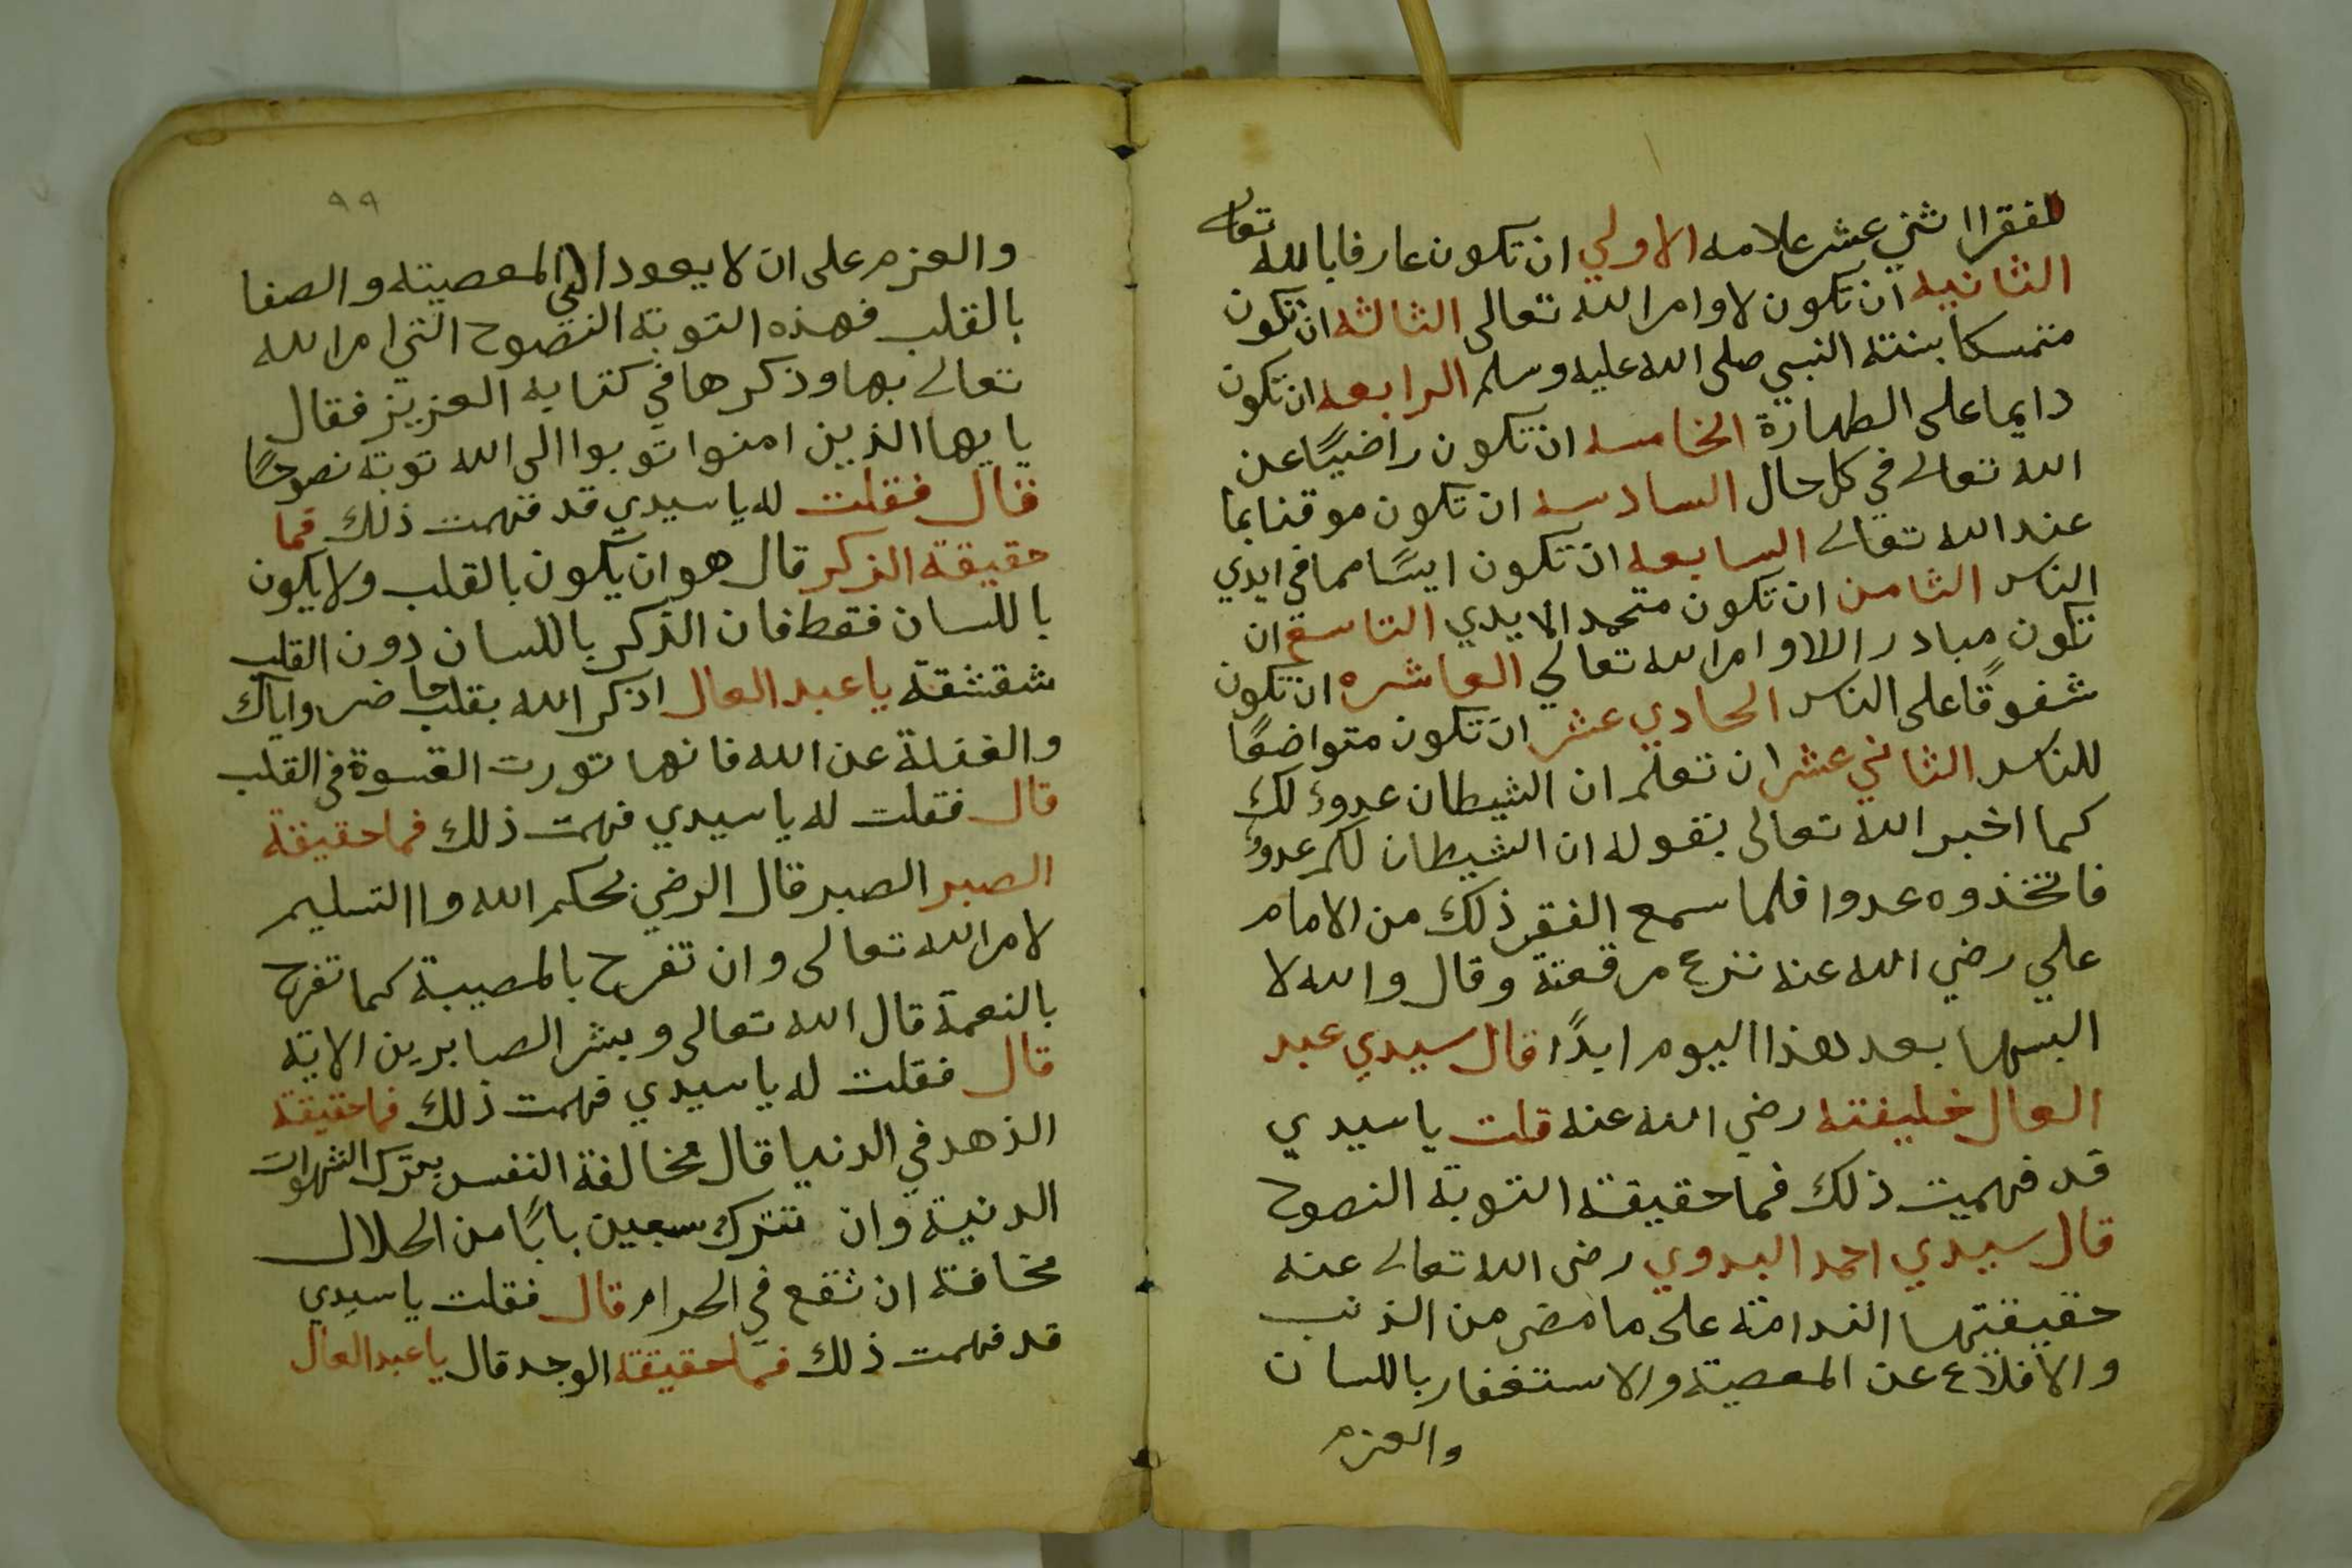 للفقرا اثني عشر علامه الاولي ان تكون عارفا بالله تعالى
الثانيه ان تكون لاوامر الله تعالى الثالثه ان تكون
متمسكا بسنته النبي صلى الله عليه وسلم الرابعه ان تكون
دايما على الطهارة الخامسه ان تكون راضيًا عن
الله تعالى في كل حال السادسه ان تكون موقنا بما
عند الله تعالى السابعه ان تكون ايسًا مما في ايدي
الناس الثامن ان تكون متحمد الايدي التاسع ان
تكون مبادر اللاوامر الله تعالي العاشره ان تكون
شفوقًا على الناس الحادي عشر ان تكون متواضعًا
للناس الثاني عشر ان تعلم ان الشيطان عدوٌ لك
كما اخبر الله تعالى بقوله ان الشيطان لكم عدوٌ
فاتخذوه عدوا فلما سمع الفقير ذلك من الامام
علي رضي الله عنه نزع مرقعتة وقال والله لا
البسها بعد هذا اليوم ابدًا قال سيدي عبد
العال خليفته رضي الله عنه قلت يا سيدي
قد فهميت ذلك فما حقيقة التوبة النصوح
قال سيدي احمد البدوي رضى الله تعالى عنه
حقيقتها الندامة على ما مضى من الذنب
والاقلاع عن المعصية والاستغفار باللسان
والعزم
٩٩
والعزم على ان لا يعود الى المعصيته والصفا
بالقلب فهذه التوبة النصوح التي امر الله
تعالى بها وذكرها في كتابه العزيز فقال
يايها الذين امنوا توبوا الى الله توبة نصوحًا
قال فقلت له يا سيدي قد فهمت ذلك فما
حقيقة الذكر قال هو ان يكون بالقلب ولا يكون
باللسان فقط فان الذكر باللسان دون القلب
شقشقة يا عبد العال اذكر الله بقلب حاضر واياك
والغفلة عن الله فانها تورت القسوة في القلب
قال فقلت له يا سيدي فهمت ذلك فما حقيقة
الصبر الصبر قال الرضي بحكم الله واالتسليم
لامر الله تعالى وان تفرح بالمصيبة كما تفرح
بالنعمة قال الله تعالى وبشر الصابرين الاية
قال فقلت له يا سيدي فهمت ذلك فما حقيقة
الذهد في الدنيا قال مخالفة النفس بترك الشهوات
الدنية وان تترك سبعين بابًا من الحلال
مخافة ان تقع في الحرام قال فقلت يا سيدي
قد فهمت ذلك فما حقيقة الوجد قال يا عبد العال